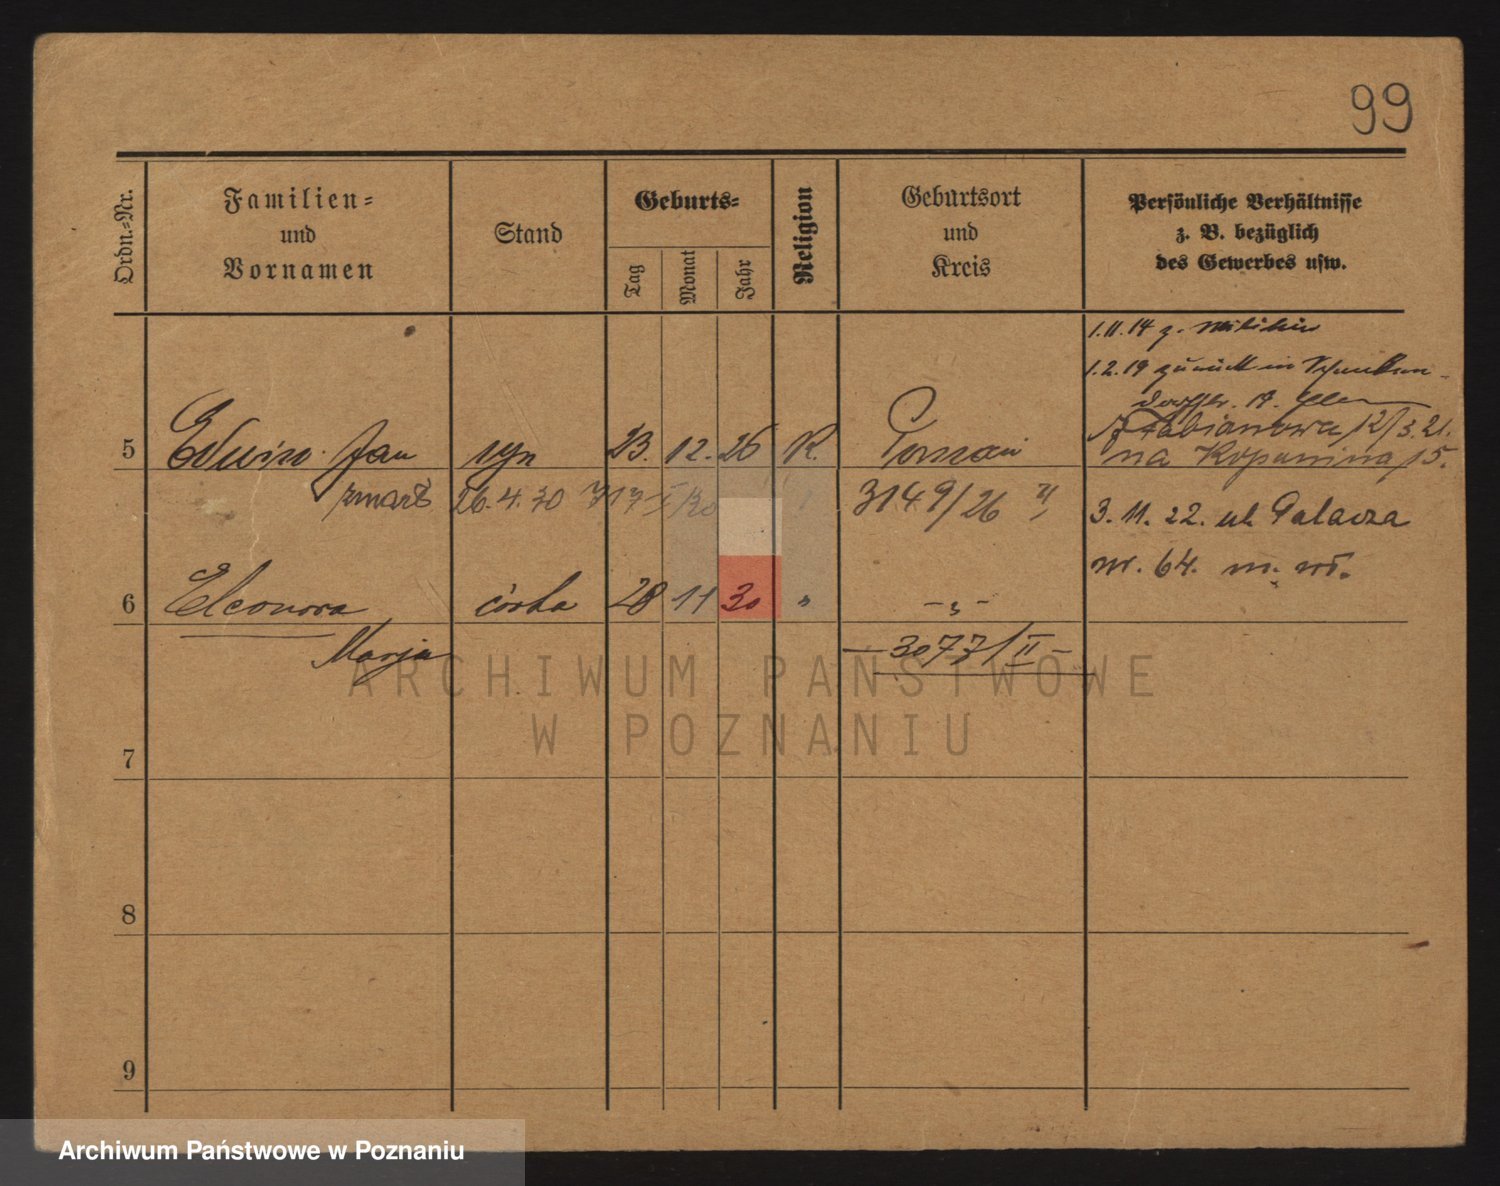 99
Ordn.-Nr.
Familien-
und
Vornamen
Stand
Geburts-
Tag
Monat
Jahr
Religion
Geburtsort
und
Kreis
Persönliche Verhältnisse
z. B. bezüglich
des Gewerbes usw.
1.11.14 z. Militär
1.2.19 zurück in
5 Edwin Jan syn 23. 12. 26 R. Poznań
Fabianowa 12/3.21.
na Kopanina 15.
zmarł 26.4.30 717 I/30 3149/26 II
3. 11. 22. ul. Palacza
nr. 64. m. wł.
6 Eleonora córka 28 11 30 " -"-
Marja
—3077/II—
7
8
9
ARCHIWUM PAŃSTWOWE
W POZNANIU
Archiwum Państwowe w Poznaniu